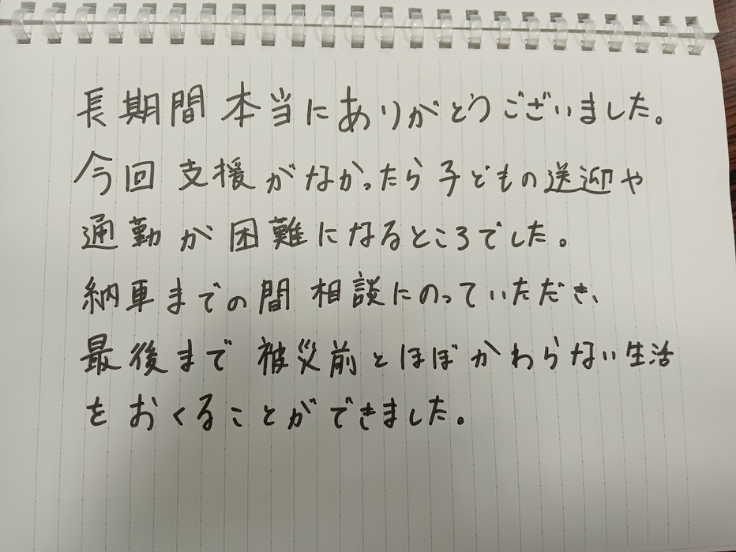 長期間本当にありがとうございました。
今回支援がなかったら子どもの送迎や
通勤が困難になるところでした。
納車までの間相談にのっていただき、
最後まで被災前とほぼかわらない生活
をおくることができました。